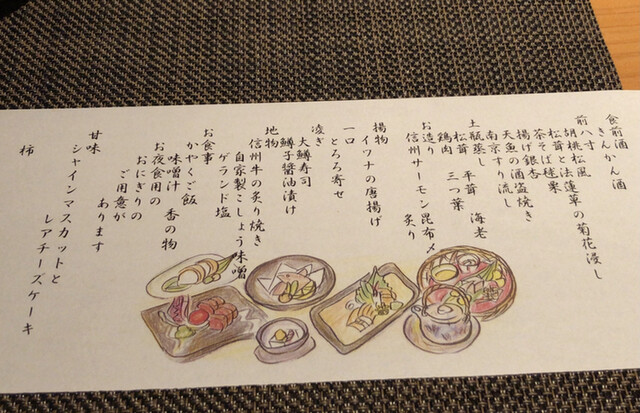 食前酒
きんかん酒
前八寸
胡桃松風
松茸と法蓮草の菊花浸し
茶そば毬栗
揚げ銀杏
天魚の酒盗焼き
南京すり流し
土瓶蒸し 平茸 海老
松茸 三つ葉
鶏肉
お造り
信州サーモン昆布〆
炙り
揚物
イワナの唐揚げ
一口
とろろ寄せ
凌ぎ
大鱒寿司
鱒子醤油漬け
地物
信州牛の炙り焼き
自家製こしょう味噌
ゲランド塩
お食事
かやくご飯
味噌汁 香の物
お夜食用の
おにぎりの
ご用意が
あります
甘味
シャインマスカットと
レアチーズケーキ
柿